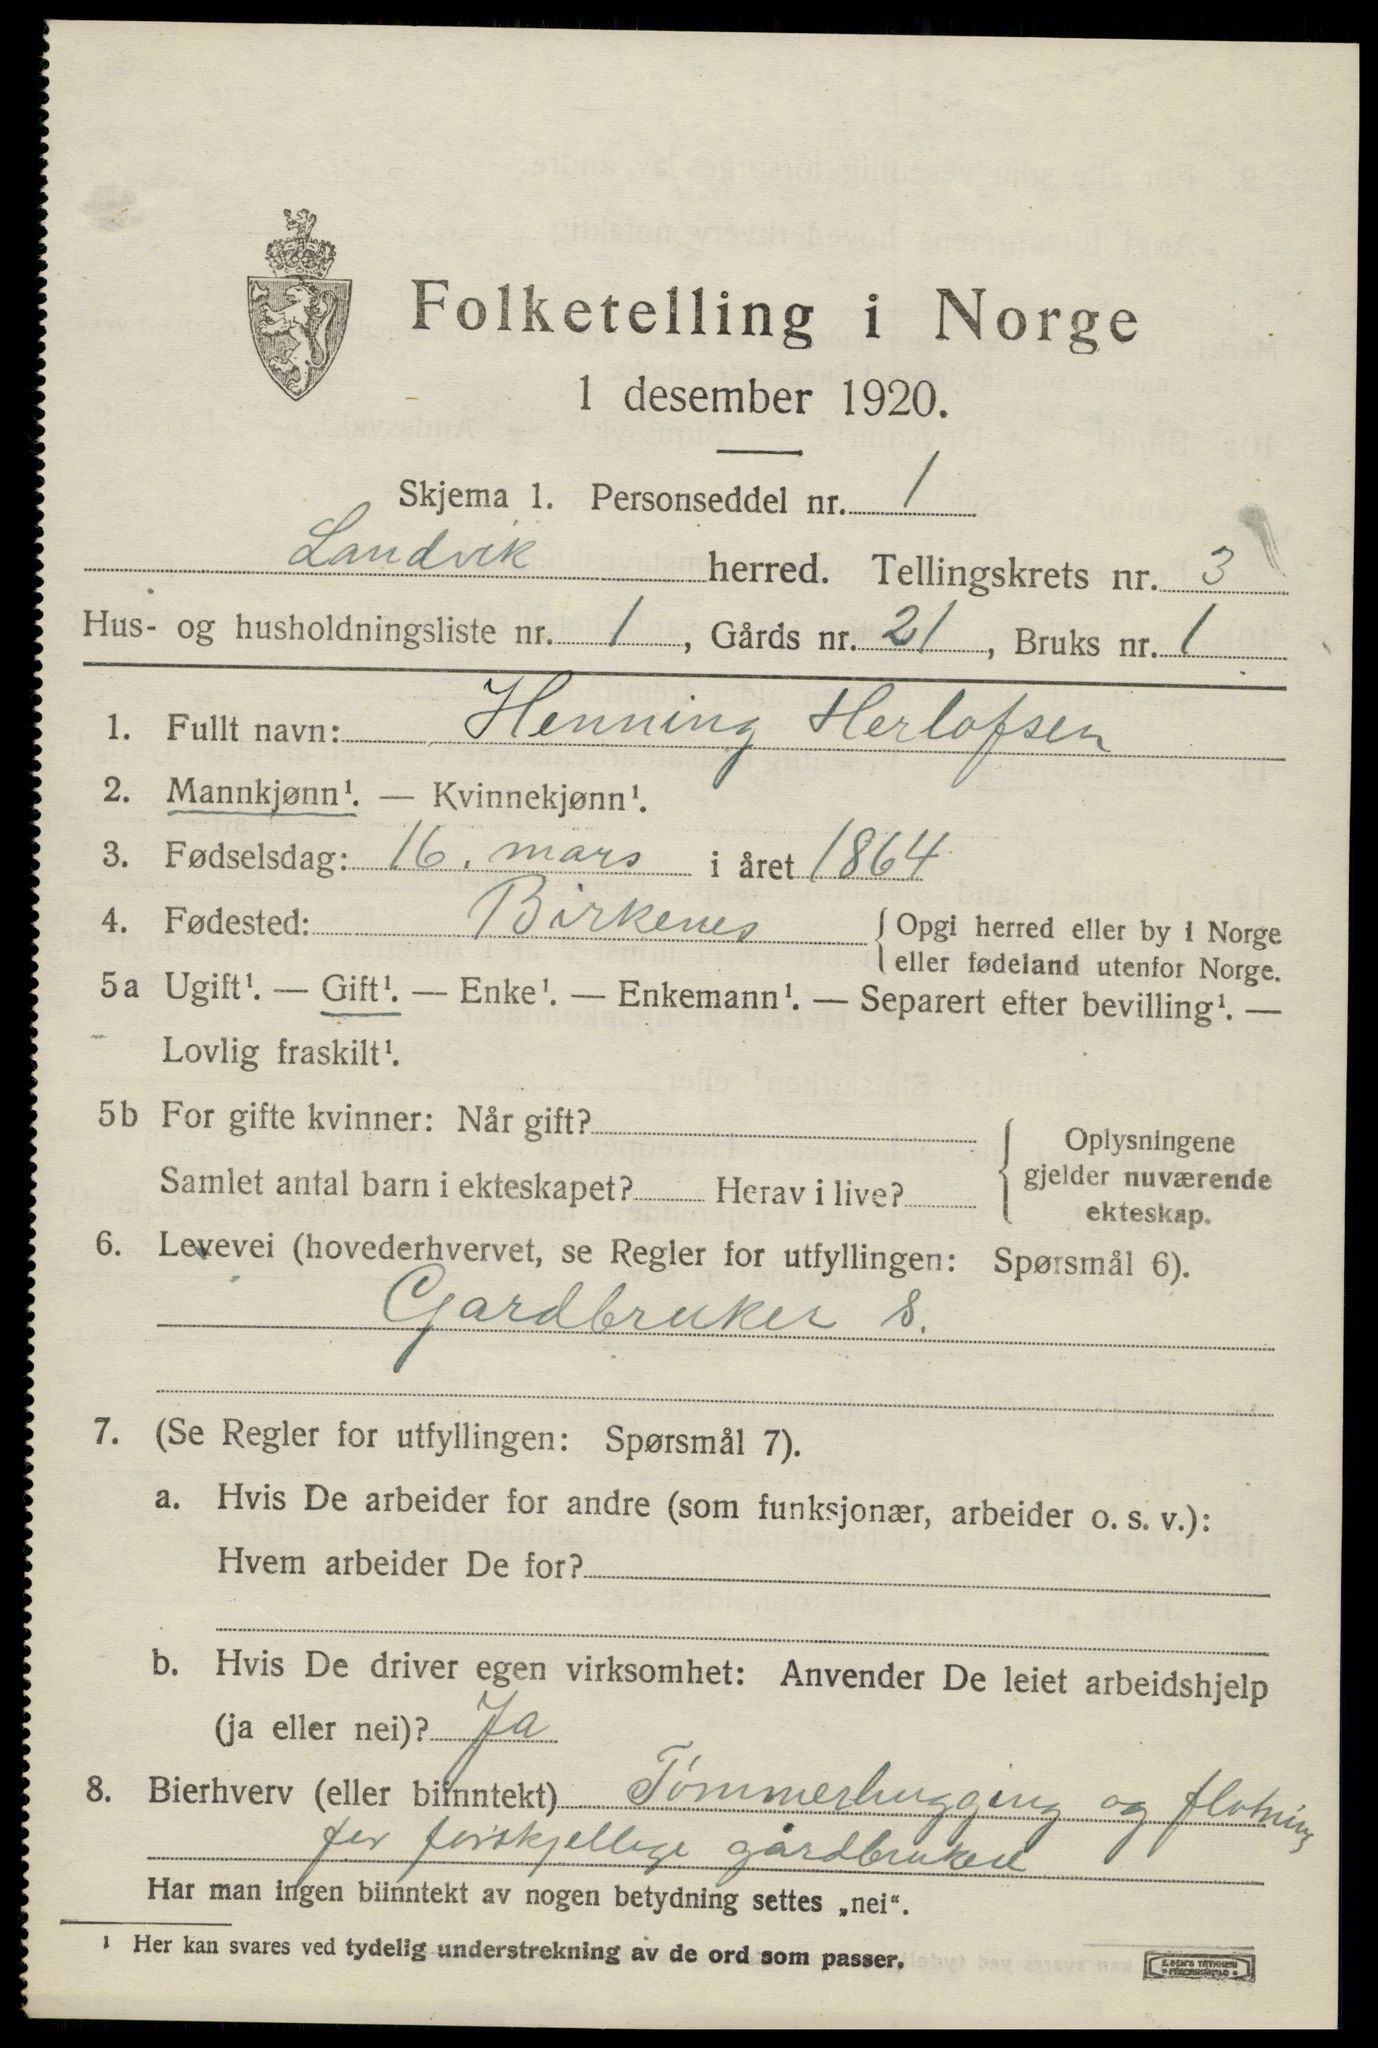 Folketelling i Norge
1 desember 1920.
Skjema 1. Personseddel nr. 1
Landvik herred. Tellingskrets nr. 3
Hus- og husholdningsliste nr. 1, Gårds nr. 21, Bruks nr. 1
1. Fullt navn: Henning Herlofsen
2. Mannkjønn¹. — Kvinnekjønn¹.
3. Fødselsdag: 16. mars i året 1864
4. Fødested: Birkenes { Opgi herred eller by i Norge
eller fødeland utenfor Norge.
5a Ugift¹. — Gift¹. — Enke¹. — Enkemann¹. — Separert efter bevilling¹. —
Lovlig fraskilt¹.
5b For gifte kvinner: Når gift?
Samlet antal barn i ekteskapet? Herav i live?
Oplysningene
gjelder nuværende
ekteskap.
6. Levevei (hovederhvervet, se Regler for utfyllingen: Spørsmål 6).
Gardbruker s.
7. (Se Regler for utfyllingen: Spørsmål 7).
a. Hvis De arbeider for andre (som funksjonær, arbeider o. s. v.):
Hvem arbeider De for?
b. Hvis De driver egen virksomhet: Anvender De leiet arbeidshjelp
(ja eller nei)? Ja
8. Bierhverv (eller biinntekt) Tømmerhugging og fløtning
for forskjellige gårdbrukere
Har man ingen biinntekt av nogen betydning settes „nei“.
¹ Her kan svares ved tydelig understrekning av de ord som passer.